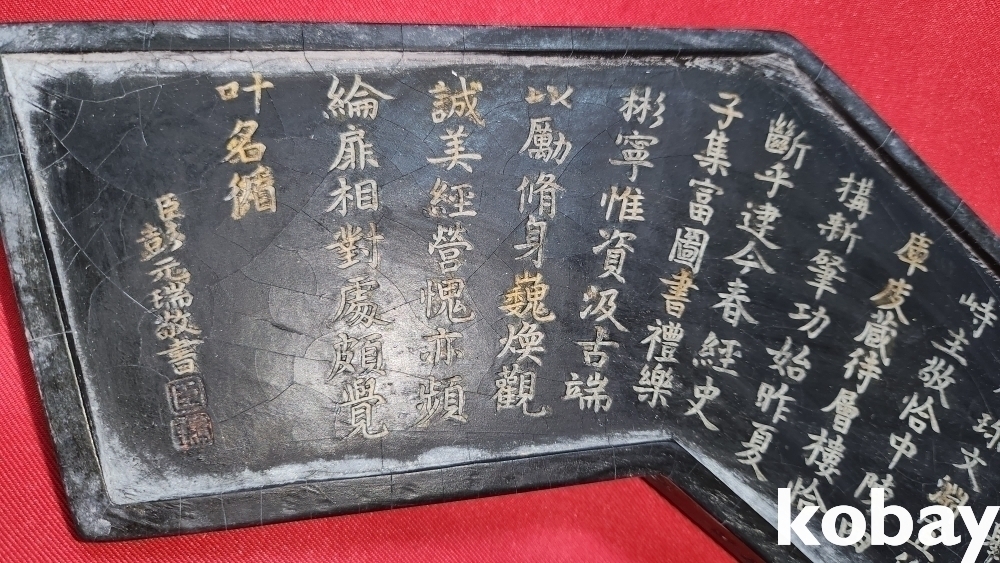 文淵
峙主敬恰中陳
庫皮蔵待層樓恰
構新肇功始昨夏
斷乎建今春經史
子集富圖書禮樂
彬寧惟資汲古端
以勵脩身巍煥觀
誠美經營愧亦頻
綸扉相對處頗覺
叶名循
臣彭元瑞敬書
kobay